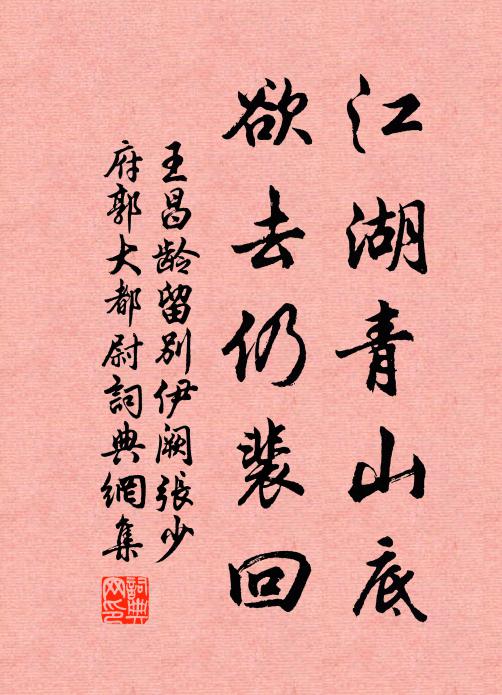 江湖青山底
欲去仍裴回
王昌龄留别伊阙張少
府郭大都尉詞典網集
詞典网印